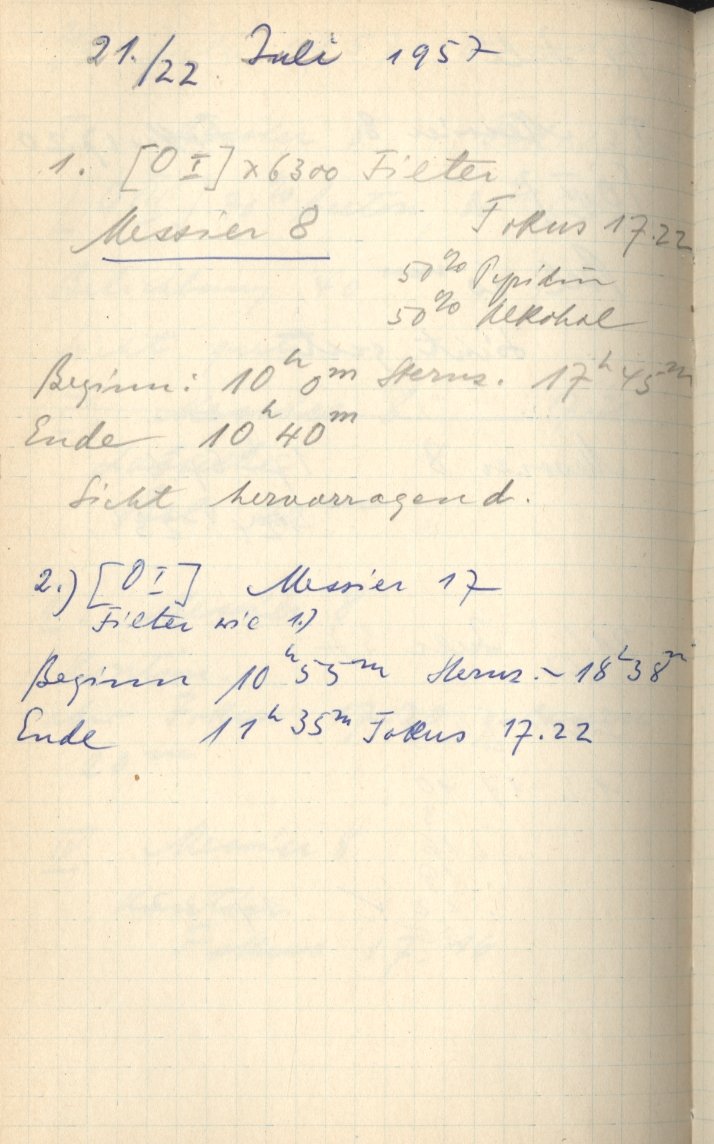 21./22. Juli 1957
1. [O I] λ6300 Filter
Messier 8 Fokus 17.22
50% Pyridin
50% Alkohol
Beginn: 10ʰ 0ᵐ Sternz. 17ʰ 45ᵐ
Ende 10ʰ 40ᵐ
Sicht hervorragend.
2.) [O I] Messier 17
Filter wie 1.)
Beginn 10ʰ 55ᵐ Sternz. ~ 18ʰ 38ᵐ
Ende 11ʰ 35ᵐ Fokus 17.22